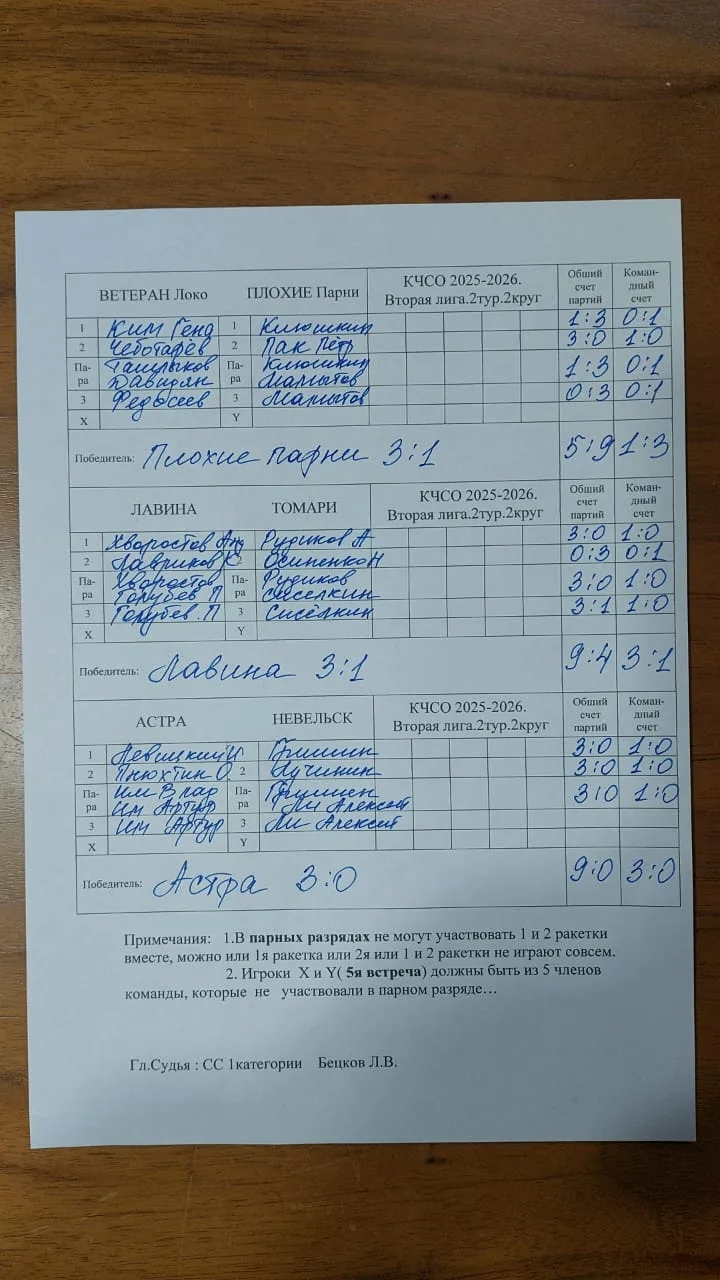 ВЕТЕРАН Локо ПЛОХИЕ Парни КЧСО 2025-2026. Вторая лига.2тур.2круг Общий счет партий Коман-дный счет
1 Ким Генд 1 Клюшкин 1:3 0:1
2 Чеботарёв 2 Пак Пётр 3:0 1:0
Па-ра Ташлыков Па-ра Клюшкин 1:3 0:1
Давидян Мамытов
3 Федосеев 3 Мамытов 0:3 0:1
X Y
Победитель: Плохие парни 3:1 5:9 1:3
ЛАВИНА ТОМАРИ КЧСО 2025-2026. Вторая лига.2тур.2круг Общий счет партий Коман-дный счет
1 Хворостов Анд Рудиков А 3:0 1:0
2 Лавриков К 2 Осипенко Н 0:3 0:1
Па-ра Хворостов Па-ра Рудиков 3:0 1:0
Голубев П Сисёлкин
3 Голубев.П 3 Сисёлкин 3:1 1:0
X Y
Победитель: Лавина 3:1 9:4 3:1
АСТРА НЕВЕЛЬСК КЧСО 2025-2026. Вторая лига.2тур.2круг Общий счет партий Коман-дный счет
1 Невицкий И. Гришин 3:0 1:0
2 Пнюхтин О 2 Лучинин 3:0 1:0
Па-ра Им Влад Па-ра Гришин 3:0 1:0
Им Артур Ли Алексей
3 Им Артур 3 Ли Алексей
X Y
Победитель: Астра 3:0 9:0 3:0
Примечания: 1.В парных разрядах не могут участвовать 1 и 2 ракетки
вместе, можно или 1я ракетка или 2я или 1 и 2 ракетки не играют совсем.
2. Игроки X и Y( 5я встреча) должны быть из 5 членов
команды, которые не участвовали в парном разряде…
Гл.Судья : СС 1категории Бецков Л.В.